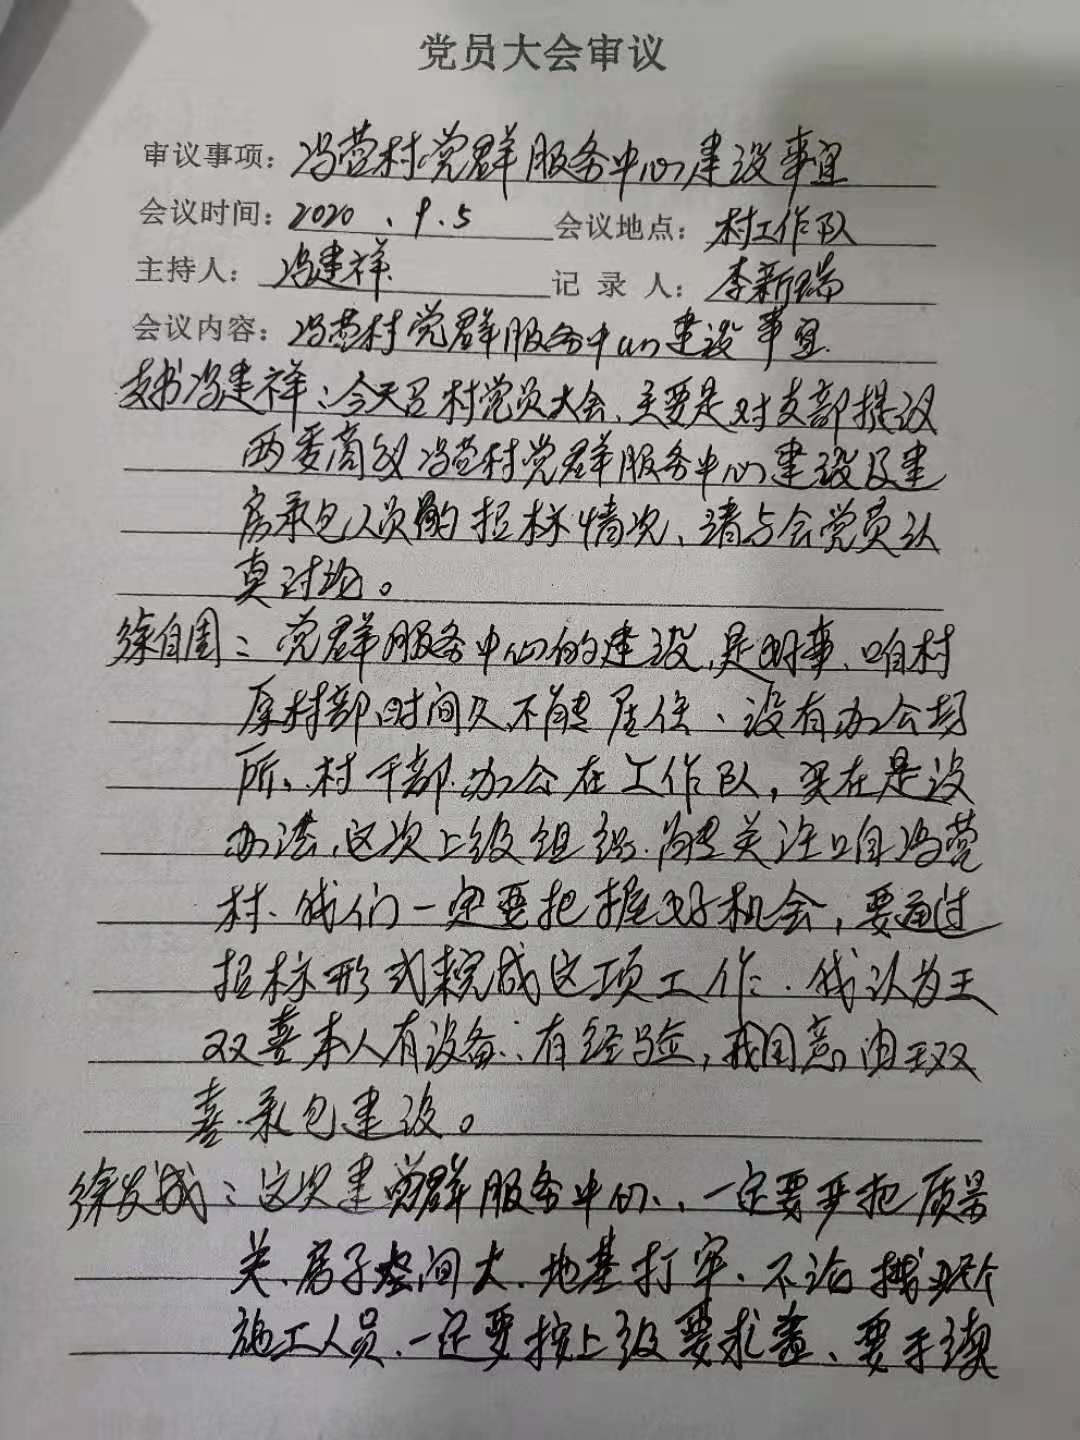 党员大会审议
审议事项：冯营村党群服务中心建设事宜
会议时间：2020、9.5 会议地点：村工作队
主持人：冯建祥 记录人：李新瑞
会议内容：冯营村党群服务中心建设事宜
支书冯建祥：今天召村党员大会、主要是对支部提议
两委商议冯营村党群服务中心建设及建
房承包人员的招标情况、请与会党员认
真讨论。
徐自周：党群服务中心的建设，是好事、咱村
原村部时间久不能居住、没有办公场
所、村干部办公在工作队，实在是没
办法、这次上级组织能关注咱冯营
村、我们一定要把握好机会，要通过
招标形式来完成这项工作、我认为王
双喜本人有设备、有经验，我同意由王双
喜承包建设。
徐发成：这次建党群服务中心、一定要严把质量
关、房子空间大、地基打牢、不论哪个
施工人员、一定要按上级要求盖、要手续